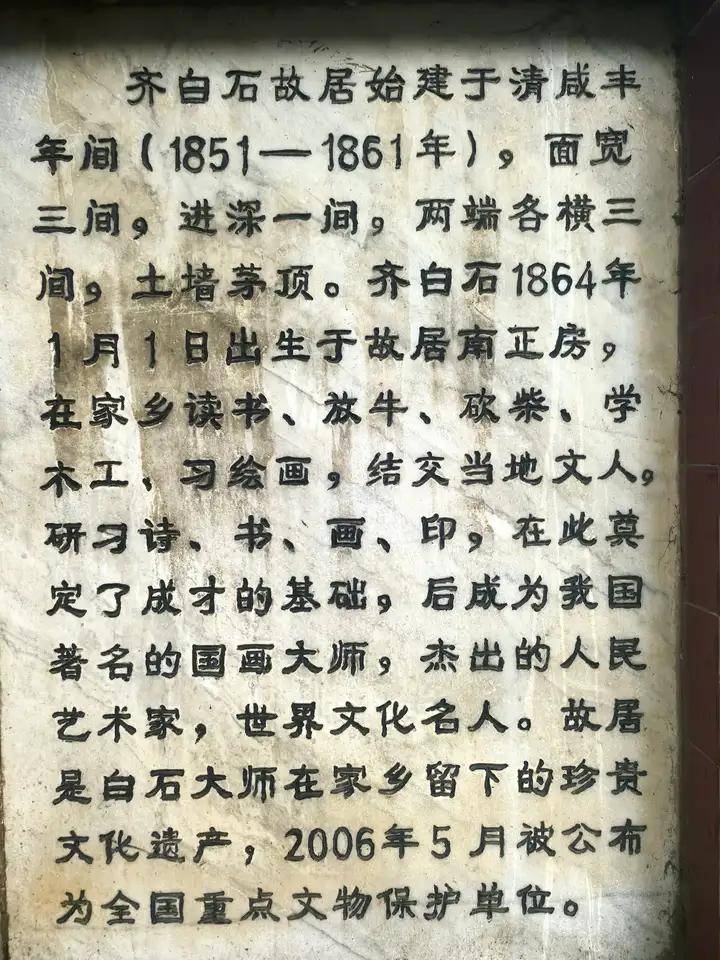 齐白石故居始建于清咸丰
年间（1851—1861年），面宽
三间，进深一间，两端各横三
间，土墙茅顶。齐白石1864年
1月1日出生于故居南正房，
在家乡读书、放牛、砍柴、学
木工、习绘画，结交当地文人，
研习诗、书、画、印，在此奠
定了成才的基础，后成为我国
著名的国画大师，杰出的人民
艺术家，世界文化名人。故居
是白石大师在家乡留下的珍贵
文化遗产，2006年5月被公布
为全国重点文物保护单位。